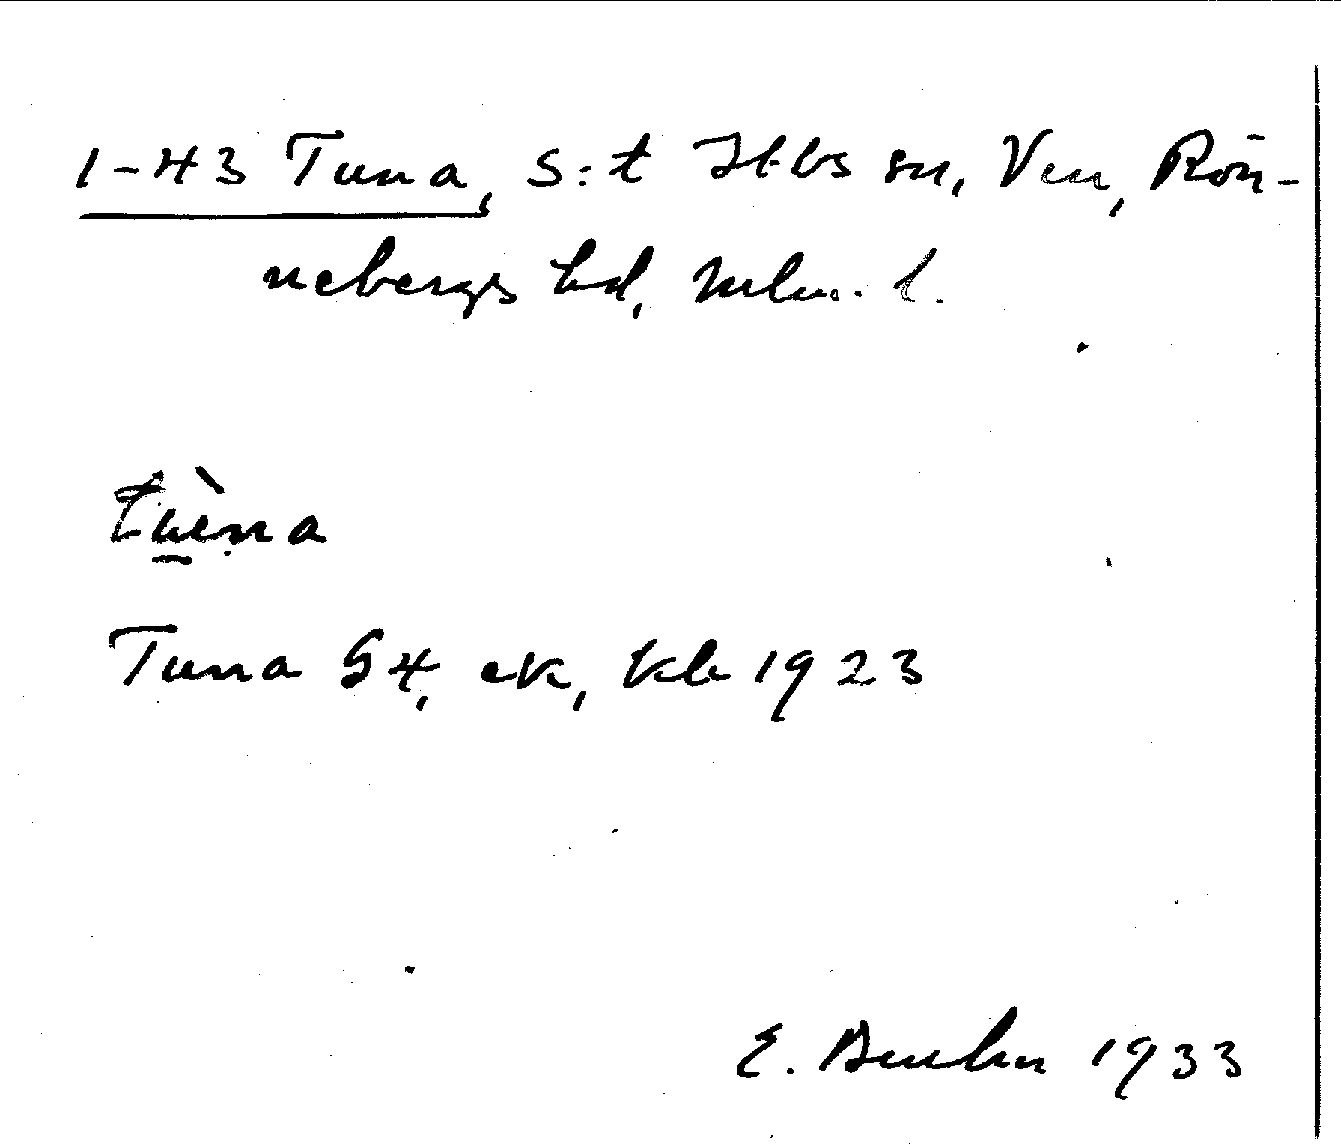 1-43 Tuna, S:t Ibbs sn, Ven, Rön-
nebergs hd, Mlm. l.
tuèna
Tuna 54, ek, kb 1923
E. 1933